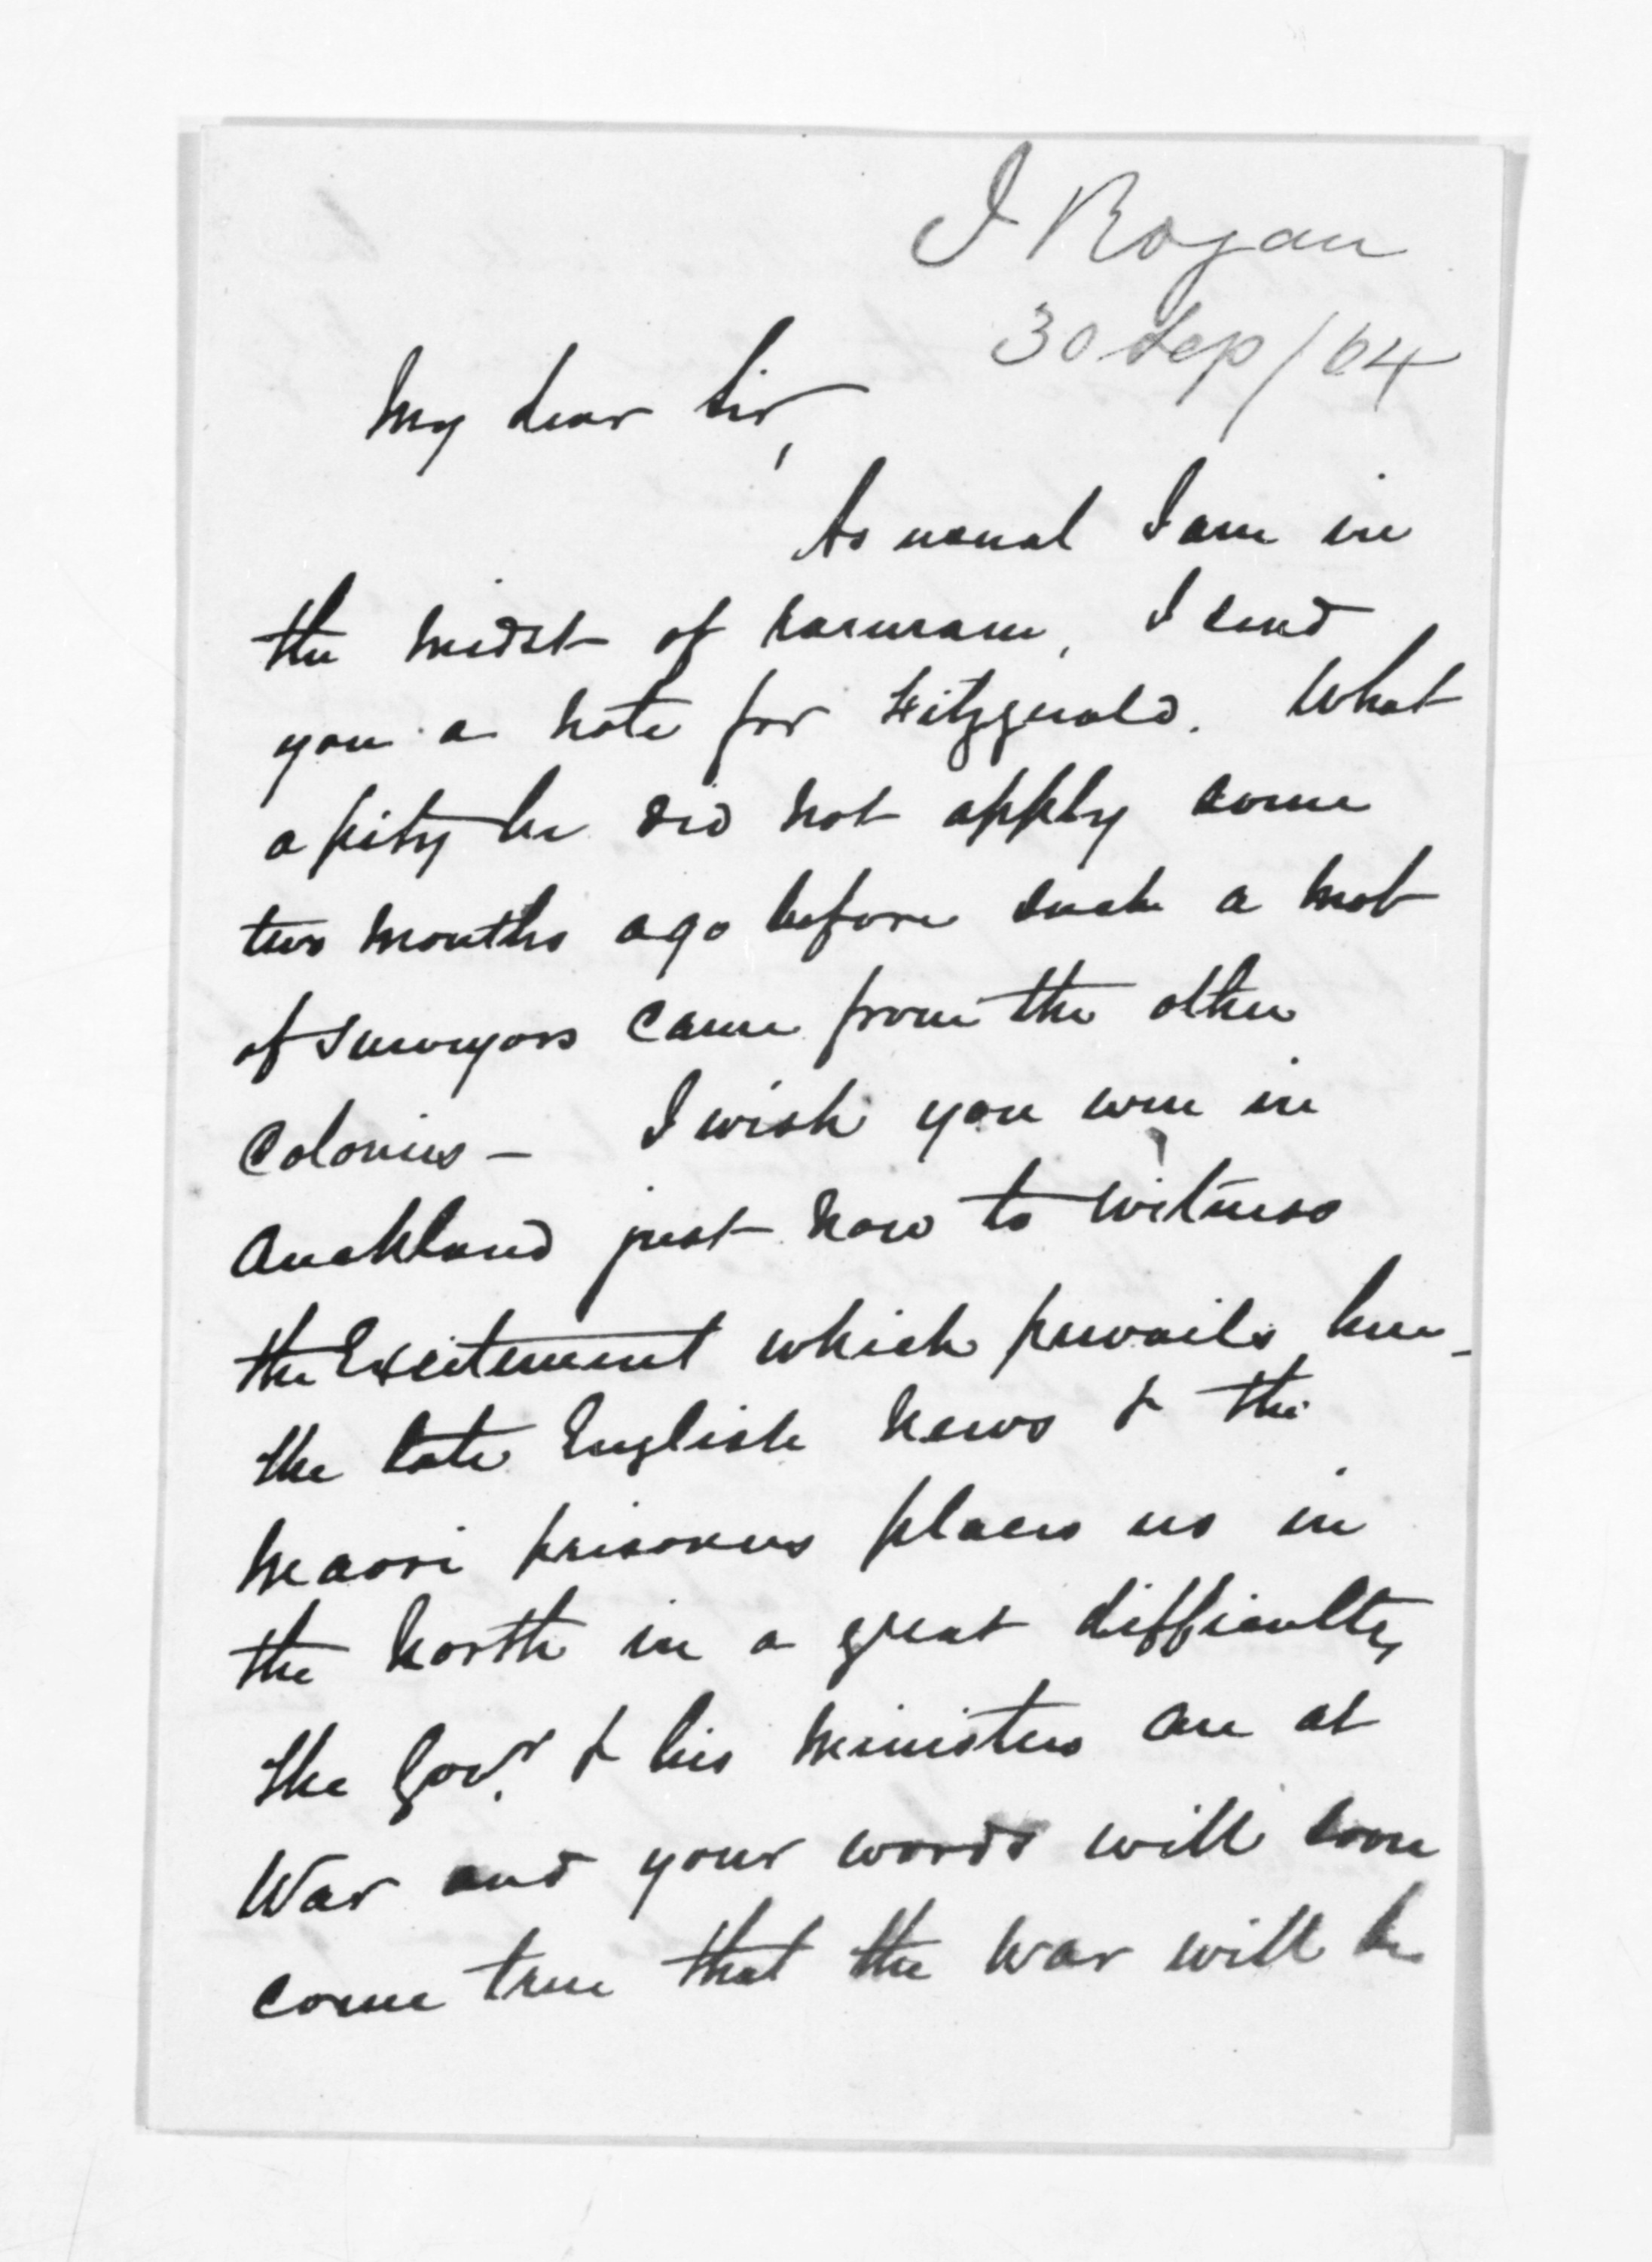 J Rogan
30 Sep/64
My dear Sir,
As usual I am in
the midst of
I send
you a note for Fitzgerald. What
a pity he did not apply some
two months ago before such a mob
of surveyors came from the other
Colonies – I wish you were in
Auckland just now to witness
the Excitement which prevails here –
the late English news & the
Maori prisoners places us in
the North in a great difficulty,
the Govr. & his Ministers are at
War and your words will soon
come true that the War will be